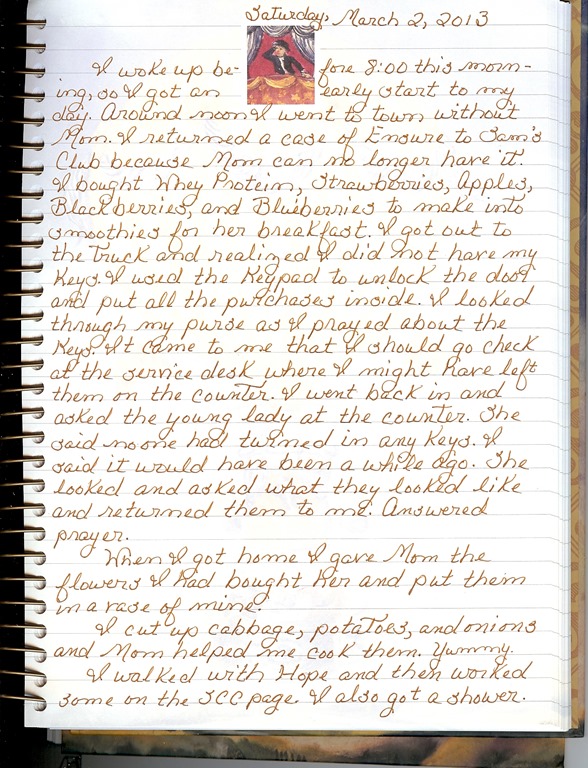 Saturday, March 2, 2013
I woke up be- fore 8:00 this morn-
ing, so I got an early start to my
day. Around noon I went to town without
Mom. I returned a case of Ensure to Sam's
Club because Mom can no longer have it.
I bought Whey Protein, Strawberries, Apples,
Blackberries, and Blueberries to make into
smoothies for her breakfast. I got out to
the Truck and realized I did not have my
Keys. I used the Keypad to unlock the door
and put all the purchases inside. I looked
through my purse as I prayed about the
Keys. It came to me that I should go check
at the service desk where I might have left
them on the counter. I went back in and
asked the young lady at the counter. She
said no one had turned in any Keys. I
said it would have been a while ago. She
looked and asked what they looked like
and returned them to me. Answered
prayer.
When I got home I gave Mom the
flowers I had bought her and put them
in a vase of mine.
I cut up cabbage, potatoes, and onions
and Mom helped me cook them. Yummy.
I walked with Hope and then worked
some on the SCC page. I also got a shower.